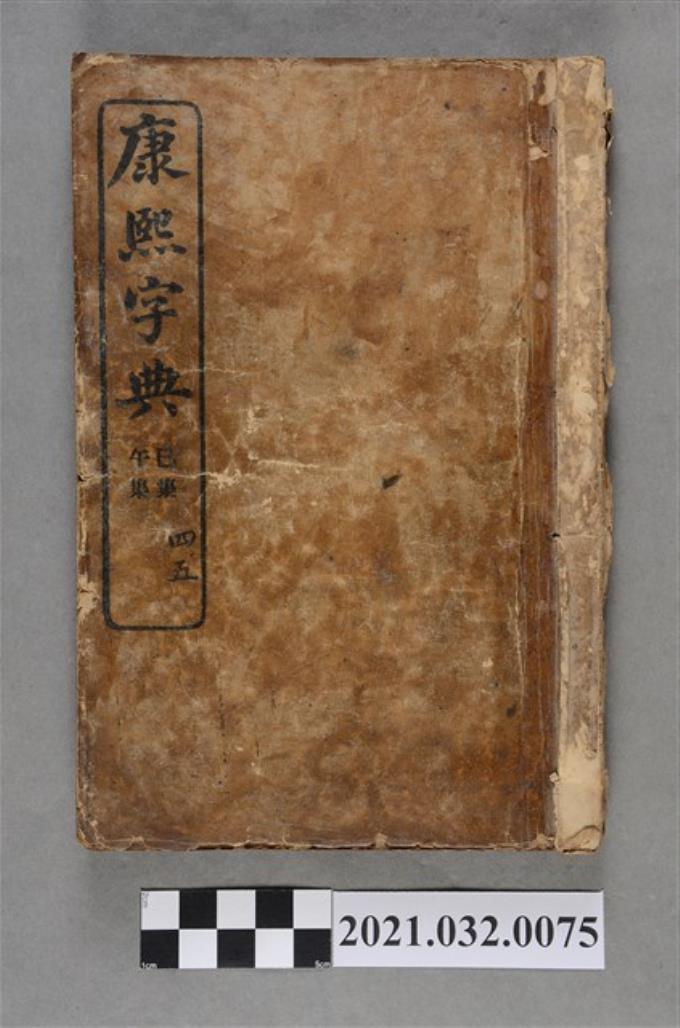 康熙字典
巳集
午集
四五
2021.032.0075
1cm
5cm